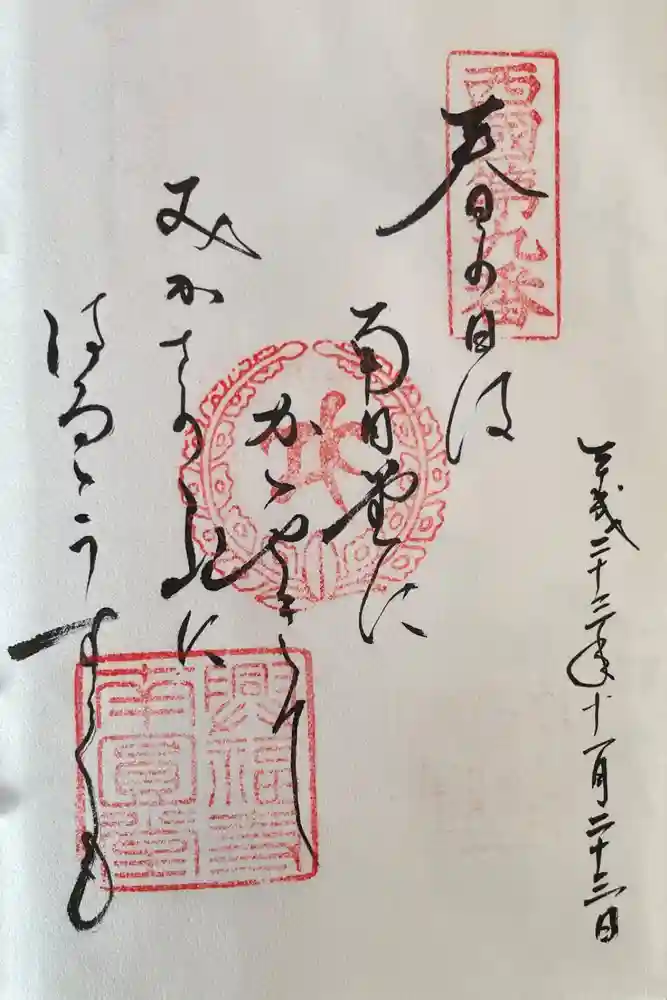 平成二十三年十一月二十三日
西国第九番
春の日は
南円堂に
かゝやきて
みかさの山に
はるゝうすくも
興福寺
南圓堂